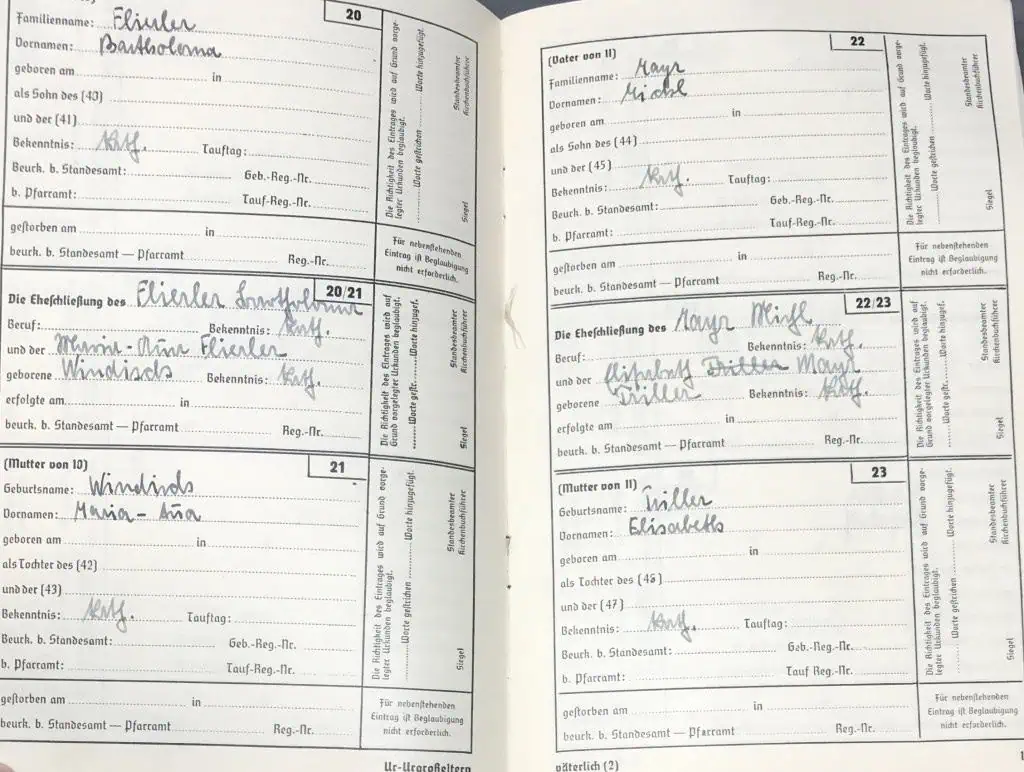 20
Familienname: Flierler
Vornamen: Bartholomä
geboren am in
als Sohn des (40)
und der (41)
Bekenntnis: kath. Tauftag:
Beurk. b. Standesamt: Geb.-Reg.-Nr.
b. Pfarramt: Tauf-Reg.-Nr.
Die Richtigkeit des Eintrages wird auf Grund vorge-
legter Urkunden beglaubigt. Worte gestrichen Worte hinzugefügt.
Siegel Standesbeamter
Kirchenbuchführer
gestorben am in
beurk. b. Standesamt — Pfarramt Reg.-Nr.
Für nebenstehenden
Eintrag ist Beglaubigung
nicht erforderlich.
20/21
Die Eheschließung des Flierler
Beruf: Bekenntnis: kath.
und der Flierler
geborene Windisch Bekenntnis: kath.
erfolgte am in
beurk. b. Standesamt — Pfarramt Reg.-Nr.
Die Richtigkeit des Eintrages wird auf
Grund vorgelegter Urkunden beglaubigt.
Worte gestr. Worte hinzugef.
Siegel Standesbeamter
Kirchenbuchführer
(Mutter von 10) 21
Geburtsname: Windisch
Vornamen: Maria - Ana
geboren am in
als Tochter des (42)
und der (43)
Bekenntnis: kath. Tauftag:
Beurk. b. Standesamt: Geb.-Reg.-Nr.
b. Pfarramt: Tauf-Reg.-Nr.
Die Richtigkeit des Eintrages wird auf Grund vorge-
legter Urkunden beglaubigt. Worte gestrichen Worte hinzugefügt.
Siegel Standesbeamter
Kirchenbuchführer
gestorben am in
beurk. b. Standesamt — Pfarramt Reg.-Nr.
Für nebenstehenden
Eintrag ist Beglaubigung
nicht erforderlich.
Ur-Urgroßeltern
(Vater von 11) 22
Familienname: Mayr
Vornamen: Michl
geboren am in
als Sohn des (44)
und der (45)
Bekenntnis: kath. Tauftag:
Beurk. b. Standesamt: Geb.-Reg.-Nr.
b. Pfarramt: Tauf-Reg.-Nr.
Die Richtigkeit des Eintrages wird auf Grund vorge-
legter Urkunden beglaubigt. Worte gestrichen Worte hinzugefügt.
Siegel Standesbeamter
Kirchenbuchführer
gestorben am in
beurk. b. Standesamt — Pfarramt Reg.-Nr.
Für nebenstehenden
Eintrag ist Beglaubigung
nicht erforderlich.
22/23
Die Eheschließung des Mayr Michl
Beruf: Bekenntnis: kath.
und der Elisabeth Triller Mayr
geborene Triller Bekenntnis: kath.
erfolgte am in
beurk. b. Standesamt — Pfarramt Reg.-Nr.
Die Richtigkeit des Eintrages wird auf
Grund vorgelegter Urkunden beglaubigt.
Worte gestr. Worte hinzugef.
Siegel Standesbeamter
Kirchenbuchführer
(Mutter von 11) 23
Geburtsname: Triller
Vornamen: Elisabeth
geboren am in
als Tochter des (46)
und der (47)
Bekenntnis: kath. Tauftag:
Beurk. b. Standesamt: Geb.-Reg.-Nr.
b. Pfarramt: Tauf Reg.-Nr.
Die Richtigkeit des Eintrages wird auf Grund vorge-
legter Urkunden beglaubigt. Worte gestrichen Worte hinzugefügt.
Siegel Standesbeamter
Kirchenbuchführer
gestorben am in
beurk. b. Standesamt — Pfarramt Reg.-Nr.
Für nebenstehenden
Eintrag ist Beglaubigung
nicht erforderlich.
väterlich (2)